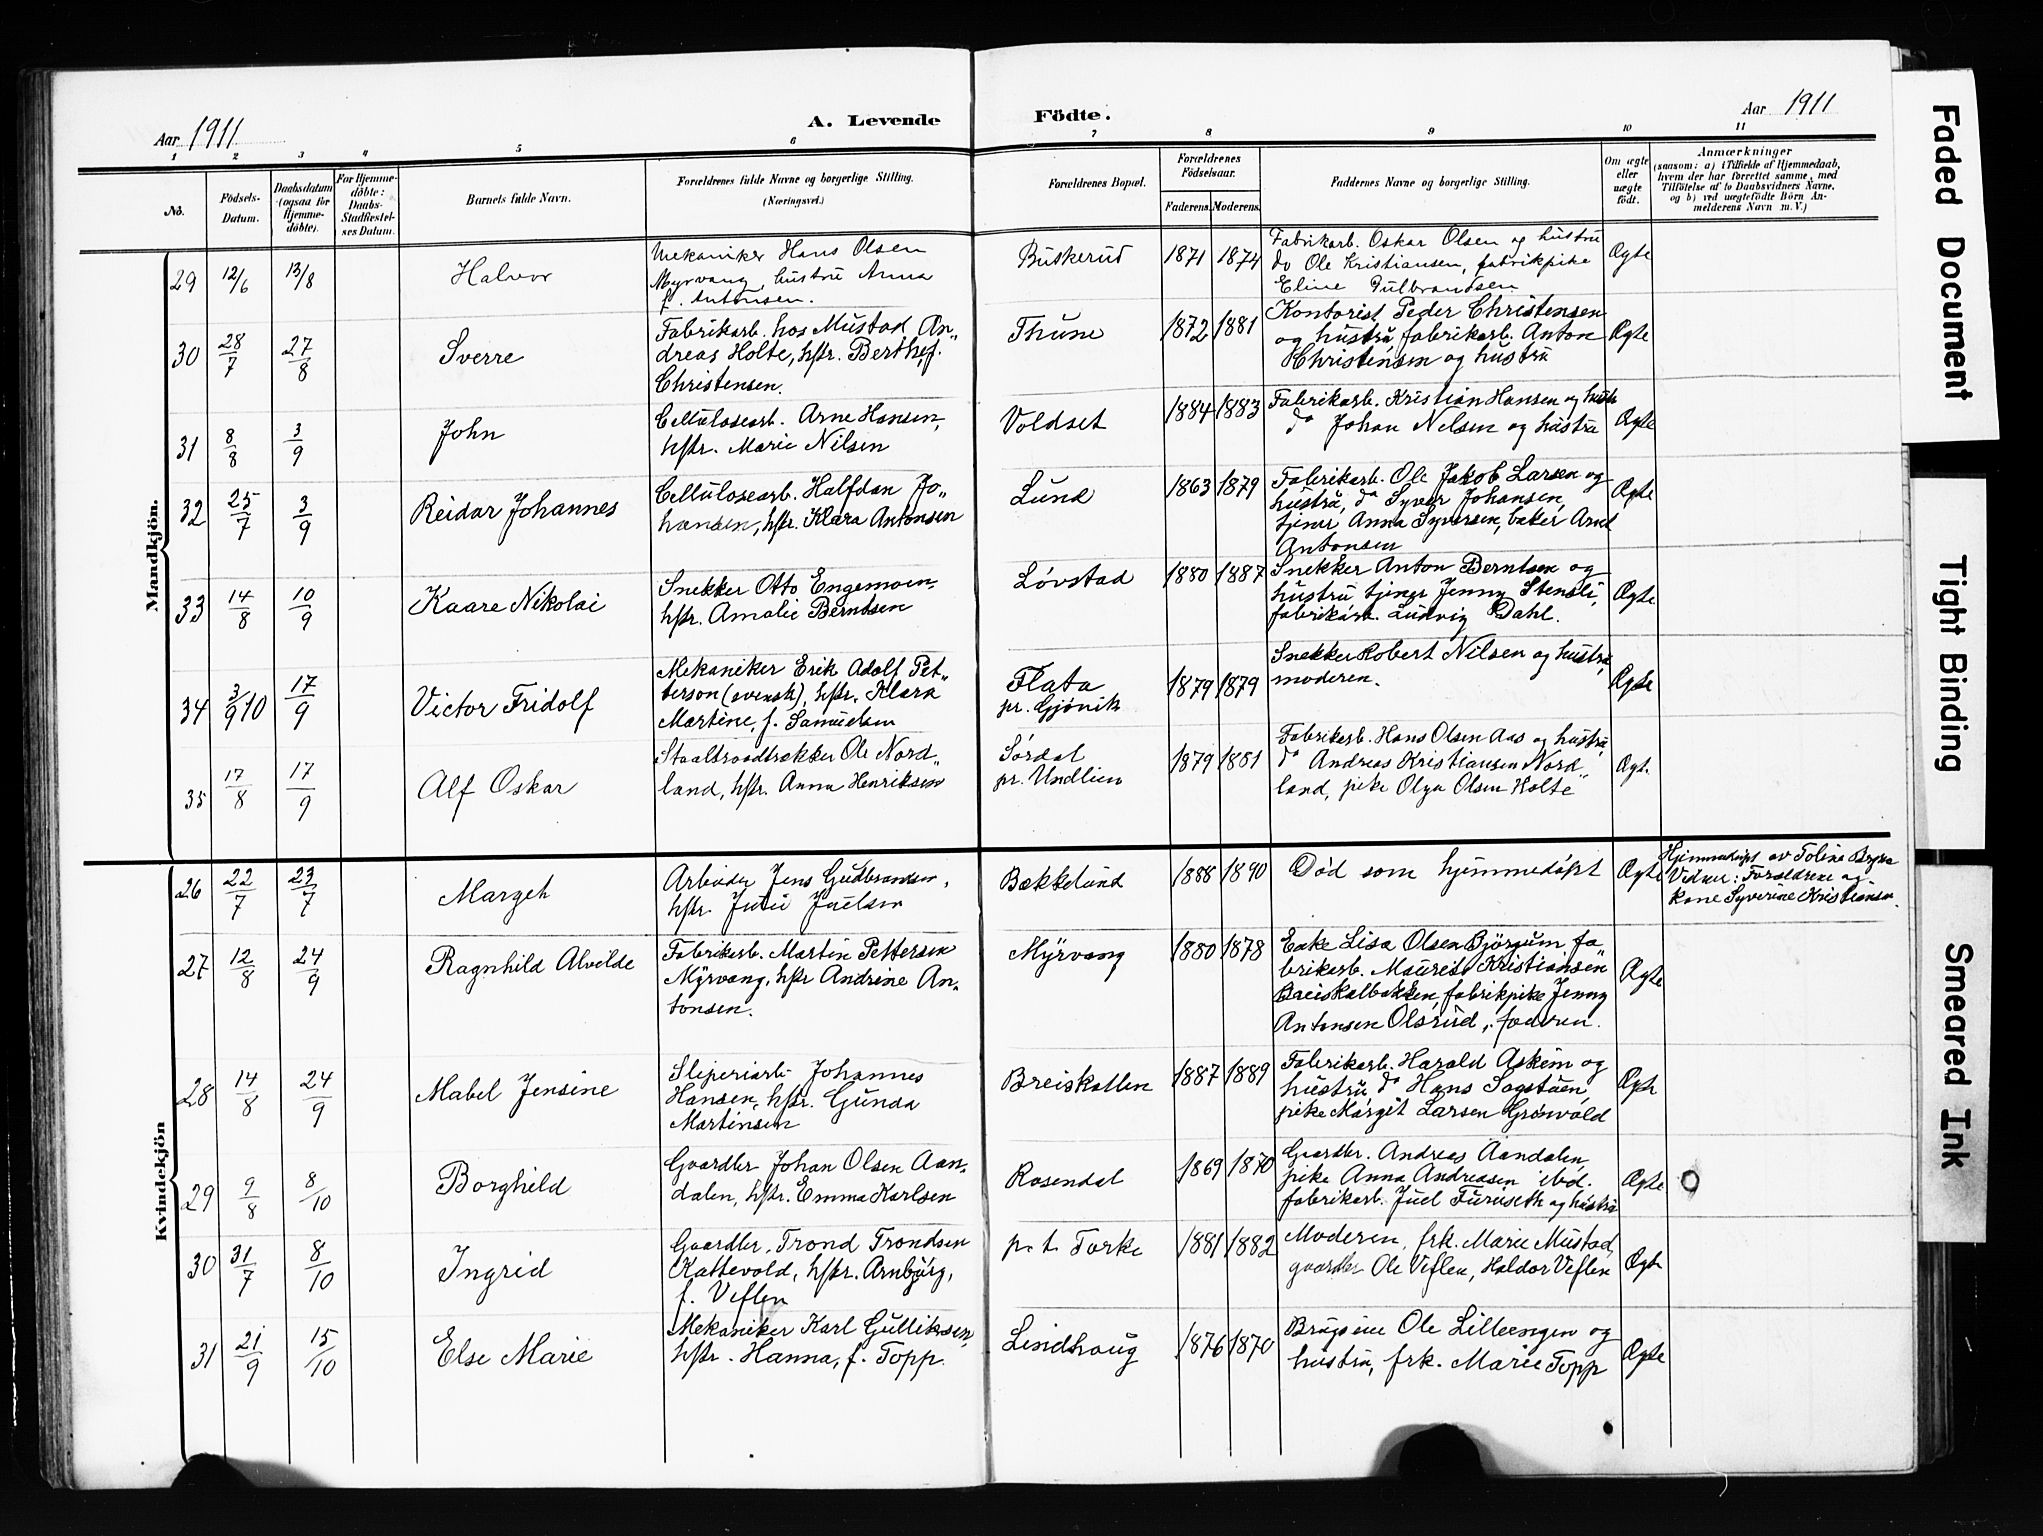 Aar 1911
A. Levende Födte.
Aar 1911
1 2 3 4 5 6 7 8 9 10 11
No.
Födsels-Datum.
Daabsdatum (ogsaa for Hjemmedöbte).
For Hjemmedöbte: Daabs-Stadfæstelses Datum.
Barnets fulde Navn.
Forældrenes fulde Navne og borgerlige Stilling. (Næringsvei.)
Forældrenes Bopæl.
Forældrenes Födselsaar.
Faderens. Moderens.
Faddernes Navne og borgerlige Stilling.
Om ægte eller uægte födt.
Anmærkninger
(saasom: a) i Tilfælde af Hjemmedaab,
hvem der har forrettet samme, med
Tilföielse af to Daabsvidners Navne,
og b) ved uægtefödte Börn Anmelderens Navn m. V.)
Mandkjön.
29 12/6 13/8 Halvor
Mekaniker Hans Olsen
Myrvang, hustru Anna
f. Antonsen.
Buskerud 1871 1874
Fabrikarb. Oskar Olsen og hustru
do Ole Kristiansen, fabrikpike
Eline Gulbrandsen
Ægte
30 28/7 27/8 Sverre
Fabrikarb. hos Mustad An„
dreas Holte, hstr. Berthe f.
Christensen.
Thune 1872 1881
Kontorist Peder Christensen
og hustru, fabrikarb. Anton
Christensen og hustru
Ægte
31 8/8 3/9 John
Cellulosearb. Arne Hansen,
hstr. Marie Nilsen
Voldset 1884 1883
Fabrikarb. Kristian Hansen og hustr
do Johan Nilsen og hustru
Ægte
32 25/7 3/9 Reidar Johannes
Cellulosearb. Halfdan Jo„
hansen, hstr. Klara Antonsen
Lund 1863 1879
Fabrikarb. Ole Jakob Larsen og
hustru, do Syver Johansen,
tjener Anna Syversen, baker Arne
Antonsen
Ægte
33 14/8 10/9 Kaare Nikolai
Snekker Otto Engemoen,
hstr. Amalie Berntsen
Løvstad 1880 1887
Snekker Anton Berntsen og
hustru tjener Jenny Stensli,
fabrikarb. Ludvig Dahl.
Ægte
34 3/9 10 17/9 Victor Fridolf
Mekaniker Erik Adolf Pet„
terson (svensk), hstr. Klara
Martine, f. Samuelsen
Flata
pr. Gjøvik
1879 1879
Snekker Robert Nilsen og hustru,
moderen.
Ægte
35 17/8 17/9 Alf Oskar
Staaltraadtrækker Ole Nord„
land, hstr. Anna Henriksen
Sørdal
pr. Undlien
1879 1881
Fabrikarb. Hans Olsen Aas og hustru,
do Andreas Kristiansen Nord„
land, pike Olga Olsen Holte
Ægt.
Kvindekjön
26 22/7 23/7 Margeh
Arbeider Jens Gudbransen,
hstr. Julie Juelsen
Bækkelund 1888 1890
Død som hjemmedøpt
Ægte
Hjemmedøpt av Toline
Vidner: Forældrene og
kone Syverine Kristiansen.
27 12/8 24/9 Ragnhild Alvilde
Fabrikarb. Martin Pettersen
Myrvang, hstr Andrine An„
tonsen.
Myrvang 1880 1878
Enke Lisa Olsen Bjørgum fa„
brikarb. Maurits Kristiansen
Breiskalbakken, fabrikpike Jenny
Antonsen Olsrud, faderen.
Ægte
28 14/8 24/9 Mabel Jensine
Sliperiarb. Johannes
Hansen, hstr. Gunda
Martinsen
Breiskallen 1887 1889
Fabrikarb. Harald Askim og
hustru, do Hans Sogstuen,
pike Margit Larsen Grønvold
Ægte
29 9/8 8/10 Borghild
Gaardbr. Johan Olsen Aan„
dalen, hstr. Emma Karlsen
Rosendal 1869 1870
Gaardbr. Andreas Aandalen,
pike Anna Andreasen ibid.
fabrikarb. Juel Furuseth og hustru
Ægte
30 31/7 8/10 Ingrid
Gaardbr. Trond Trondsen
Kattevold, hstr. Arnbjørg,
f. Veflen
p.t. Torke 1881 1882
Moderen, frk. Marie Mustad,
gaardbr Ole Veflen, Haldor Veflen
Ægte
31 21/9 15/10 Else Marie
Mekaniker Karl Gulliksen,
hstr. Hanna, f. Topp.
Lindhaug 1876 1870
Ole Lilleengen og
hustru, frk. Marie Topp
Ægte
Faded Document
Tight Binding
Smeared Ink